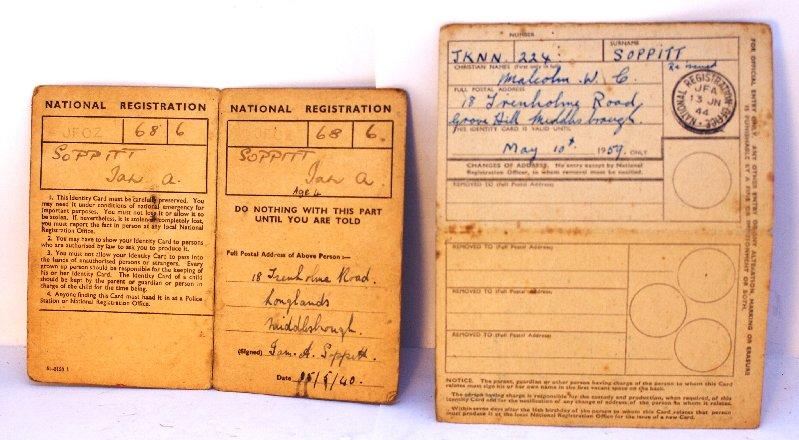 NATIONAL REGISTRATION
JFOZ 68 6
SOPPITT
Ian A.
1. This Identity Card must be carefully preserved. You
may need it under conditions of national emergency for
important purposes. You must not lose it or allow it to
be stolen. If, nevertheless, it is stolen or completely lost,
you must report the fact in person at any local National
Registration Office.
2. You may have to show your Identity Card to persons
who are authorised by law to ask you to produce it.
3. You must not allow your Identity Card to pass into
the hands of unauthorised persons or strangers. Every
grown up person should be responsible for the keeping of
his or her Identity Card. The Identity Card of a child
should be kept by the parent or guardian or person in
charge of the child for the time being.
4. Anyone finding this Card must hand it in at a Police
Station or National Registration Office.
51-8120 1
NATIONAL REGISTRATION
68 6.
SOPPITT
Ian A.
Age 4
DO NOTHING WITH THIS PART
UNTIL YOU ARE TOLD
Full Postal Address of Above Person :—
18 Trenholme Road.
Longlands
Middlesbrough.
(Signed) Ian. A. Soppitt.
Date /5/40.
NUMBER
SURNAME
JKNN 224 SOPPITT
CHRISTIAN NAMES (First only in full)
Malcolm. W. C.
Re issued
FULL POSTAL ADDRESS
18 Trenholme Road,
Grove Hill Middlesbrough.
THIS IDENTITY CARD IS VALID UNTIL
May 10th 1959. ONLY
NATIONAL REGISTRATION OFFICE
JFA
13 JN
44
CHANGES OF ADDRESS. No entry except by National
Registration Officer, to whom removal must be notified.
REMOVED TO (Full Postal Address)
REMOVED TO (Full Postal Address)
REMOVED TO (Full Postal Address)
REMOVED TO (Full Postal Address)
NOTICE. The parent, guardian or other person having charge of the person to whom this Card
relates must sign his or her own name in the first vacant space on the back.
The person having charge is responsible for the custody and production, when required, of this
Identity Card and for the notification of any change of address of the person to whom it relates.
Within seven days after the 16th birthday of the person to whom this Card relates that person
must produce it at the local National Registration Office for the issue of a new Card.
FOR OFFICIAL ENTRY ONLY. ANY OTHER ENTRY OR ANY ALTERATION, MARKING OR ERASURE
IS PUNISHABLE BY A FINE OR IMPRISONMENT OR BOTH.